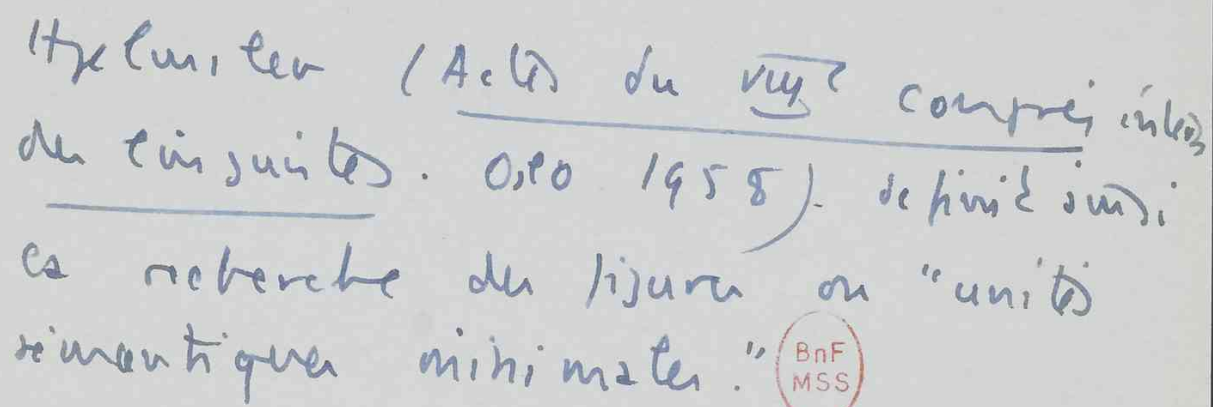 Hjelmslev (Actes du VIIIe congrès intern
des linguistes. Oslo 1958). définit ainsi
la recherche des figures ou "unités
sémantiques minimales."
BnF
MSS